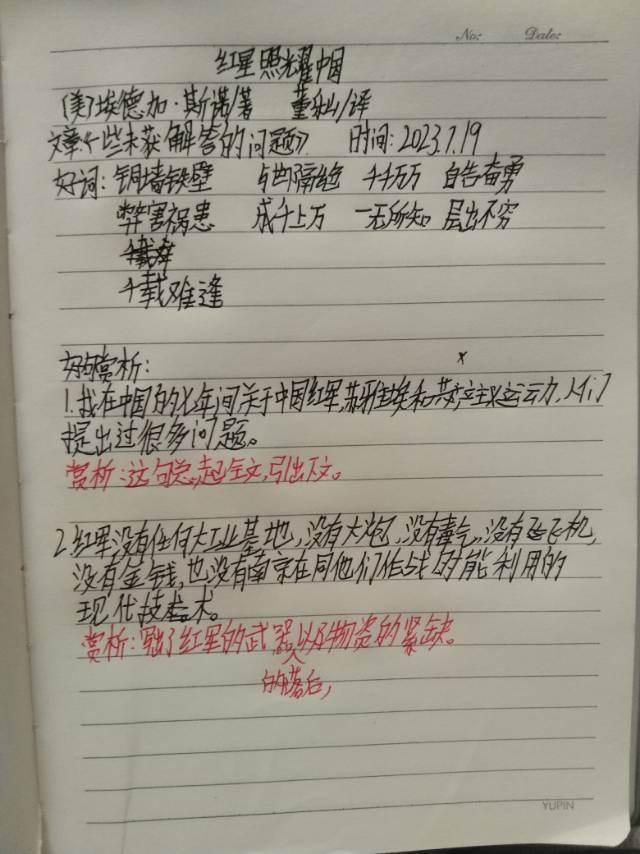 No: Date:
红星照耀中国
(美)埃德加·斯诺/著 董乐山/译
文章《一些未获解答的问题》 时间:2023.7.19
好词:铜墙铁壁 与世隔绝 千千万万 自告奋勇
弊害祸患 成千上万 一无所知 层出不穷
千载难逢
好句赏析:
1.我在中国的七年间关于中国红军,苏维埃和共产主义运动,人们
提出过很多问题。
赏析:这句总起全文,引出下文。
2.红军没有任何大工业基地,没有大炮,没有毒气,没有飞机,
没有金钱,也没有南京在同他们作战时能利用的
现代技术。
赏析:写出了红军的武器以及物资的紧缺。
的落后,
YUPIN